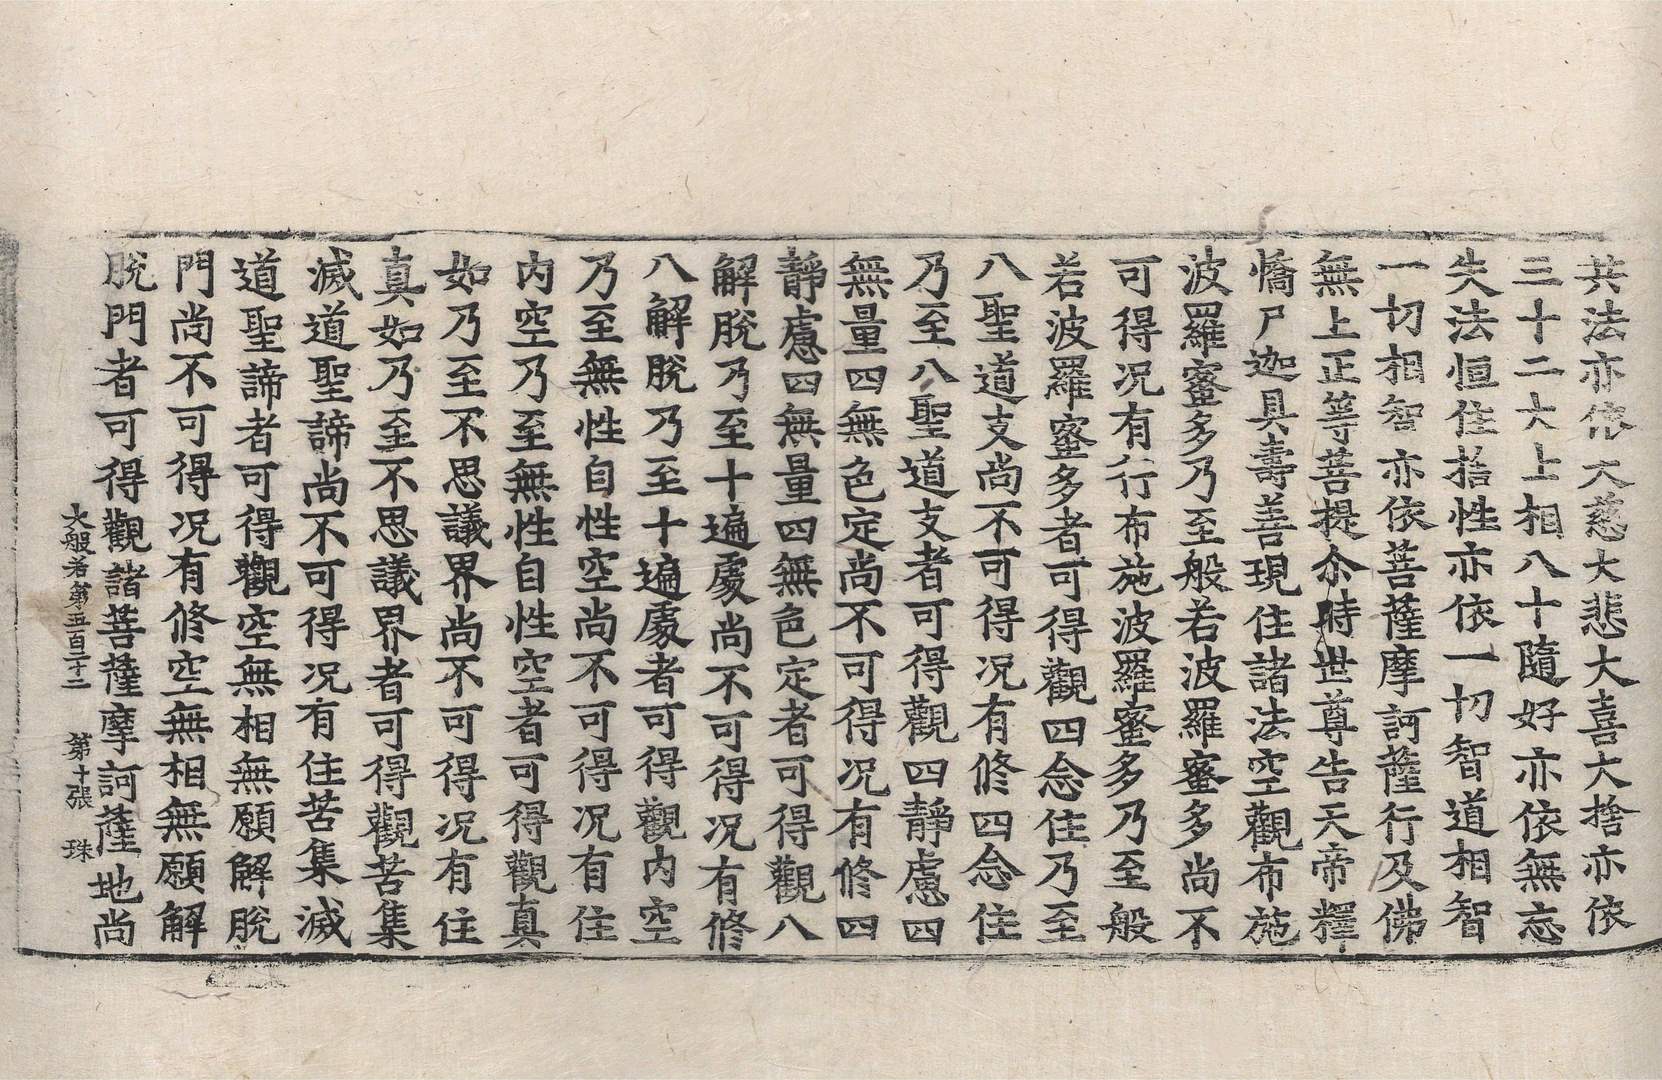 共法亦依大慈大悲大喜大捨亦依
三十二大士相八十隨好亦依無忘
失法恒住捨性亦依一切智道相智
一切相智亦依菩薩摩訶薩行及佛
無上正等菩提尒時世尊告天帝釋
憍尸迦具壽善現住諸法空觀布施
波羅蜜多乃至般若波羅蜜多尚不
可得况有行布施波羅蜜多乃至般
若波羅蜜多者可得觀四念住乃至
八聖道支尚不可得况有修四念住
乃至八聖道支者可得觀四靜慮四
無量四無色定尚不可得况有修四
靜慮四無量四無色定者可得觀八
解脫乃至十遍處尚不可得况有修
八解脫乃至十遍處者可得觀內空
乃至無性自性空尚不可得况有住
內空乃至無性自性空者可得觀真
如乃至不思議界尚不可得况有住
真如乃至不思議界者可得觀苦集
滅道聖諦尚不可得况有住苦集滅
道聖諦者可得觀空無相無願解脫
門尚不可得况有修空無相無願解
脫門者可得觀諸菩薩摩訶薩地尚
大般若第五百三十二 第十張 珠